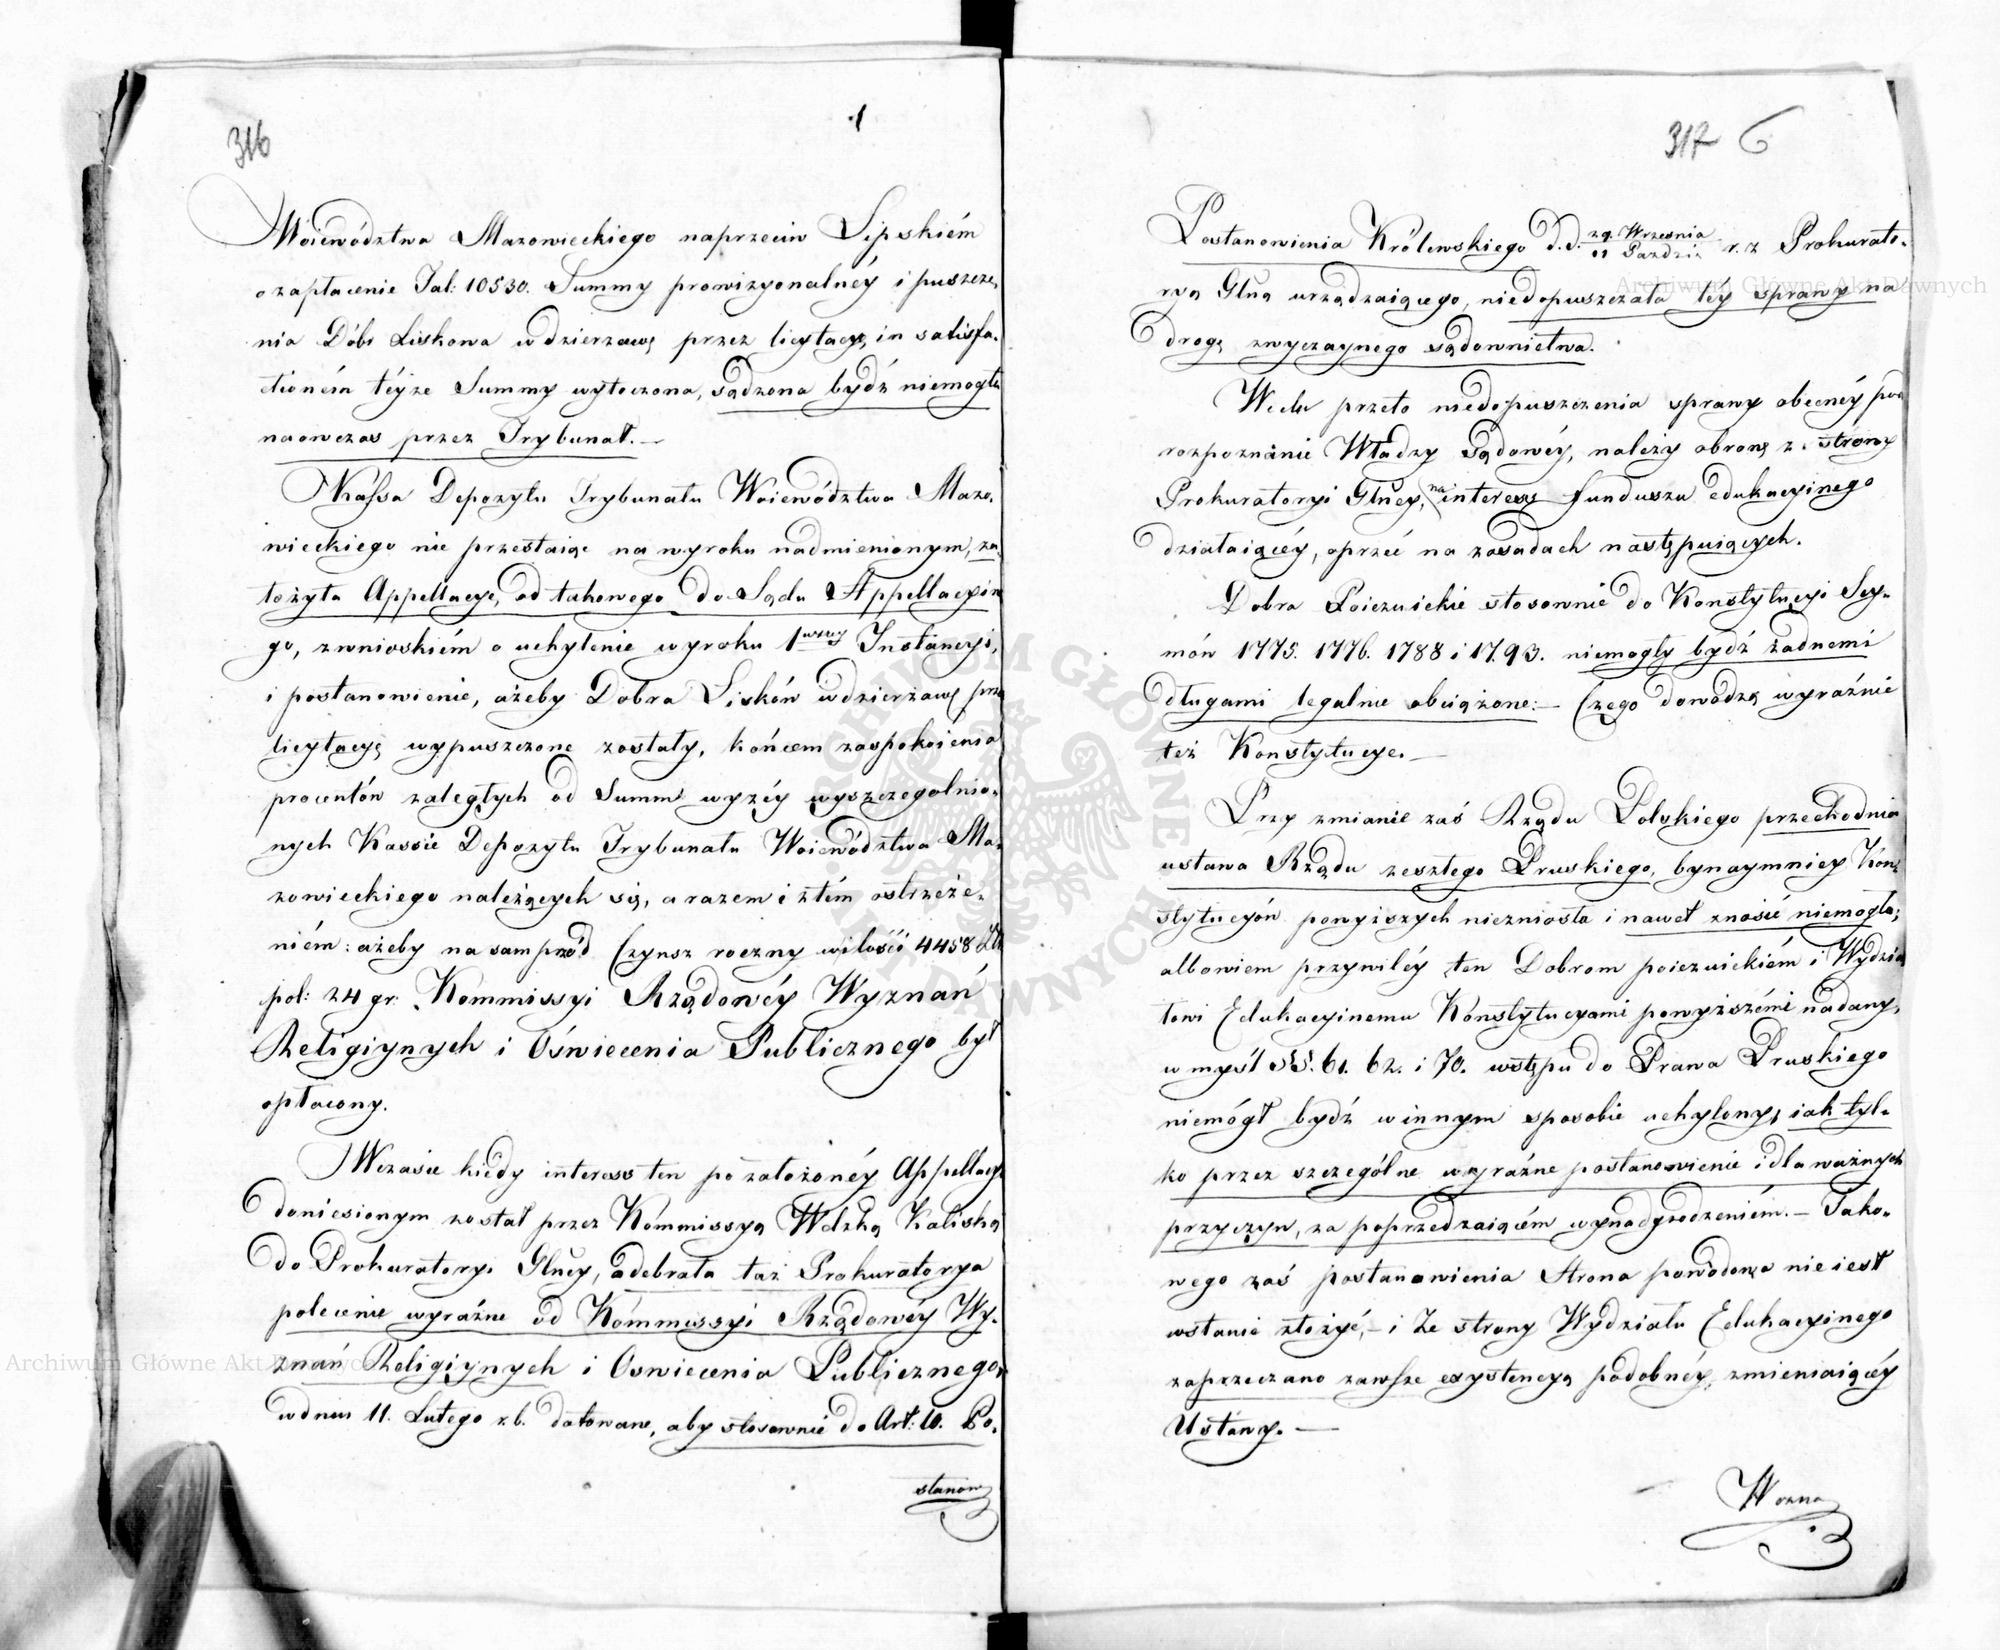 316
Woiewództwa Mazowieckiego naprzeciw Lipskiém
o zapłacenie Tal: 10530. Summy prowizyonalnéy i puszcze,
nia Dóbr Liskowa w dzierzawę przez licytacyę in satisfa-
ctioném téyże Summy wytoczona, sądzona bydź niemogła
naowczas przez Trybunał.—
Kassa Depozytu Trybunału Woiewództwa Mazo,
wieckiego nie przestaiąc na wyroku nadmienionym, za,
łożyła Appellacyę, od takowego do Sądu Appellacyin
go, z wnioskiém o uchylenie wyroku 1wszey Instancyi,
i postanowienie, ażeby Dobra Lisków w dzierzawę prze
licytacyę wypuszczone zostały, końcem zaspokoienia
procentów zaległych od Summ wyżéy wyszczególnio-
nych Kassie Depozytu Trybunału Woiewództwa Ma-
zowieckiego należących się, a razem i z tém ostrzeże-
niém: ażeby na samprzód Czynsz roczny w ilości 4458 Złt
pol: 24 gr: Kommissyi Rządowéy Wyznań
Religiynych i Oświecenia Publicznego był
opłacony.
W czasie kiedy interess ten po założonéy Appellacyi
doniesionym został przez Kommissyą Wdzką Kaliską
do Prokuratoryi Głnéy, odebrała taż Prokuratorya
polecenie wyraźne od Kommissyi Rządowéy Wy-
znań Religiynych i Oswiecenia Publicznego,
w dniu 11. Lutego r.b. datowane, aby stosownie do Art: 10. Po-
stanow
317 6
Postanowienia Królewskiego d.d. 29. Września / 11 Paździer r. z Prokurato-
ryą Głną urządzaiącego, niedopuszczała téy sprawy na
drogę zwyczaynego sądownictwa.
W celu przeto niedopuszczenia sprawy obecnéy pod
rozpoznanie Władzy Sądowéy, należy obronę ze strony
Prokuratoryi Głnéy, na interess funduszu edukacyinego
działaiącéy, oprzéć na zasadach następuiących.
Dobra Poiezuickie stosownie do Konstytucyi Sey-
mów 1775. 1776. 1788 i 1793. niemogły bydź żadnemi
długami legalnie obciążone:— Czego dowodzą wyraźnie
też Konstytucye.—
Przy zmianie zaś Rządu Polskiego przechodnia
ustawa Rządu zeszłego Pruskiego, bynaymniey Kon-
stytucyów powyższych niezniosła i nawet znosić niemogła;
albowiem przywiléy ten Dobrom poiezuickiém i Wydzia
łowi Edukacyinemu Konstytucyami powyższémi nadany,
w myśl §§. 61. 62. i 70. wstępu do Prawa Pruskiego
niemógł bydź w innym sposobie uchylony, iak tyl-
ko przez szczególne wyraźne postanowienie i dla ważnych
przyczyn, za poprzedzaiącém wynadgrodzeniém.— Tako-
wego zaś postanowienia Strona powodowa nie iest
w stanie złożyć,— i Ze strony Wydziału Edukacyinego
zaprzeczano zawsze exystencyą podobnéy, zmieniaiącéy
Ustawy.—